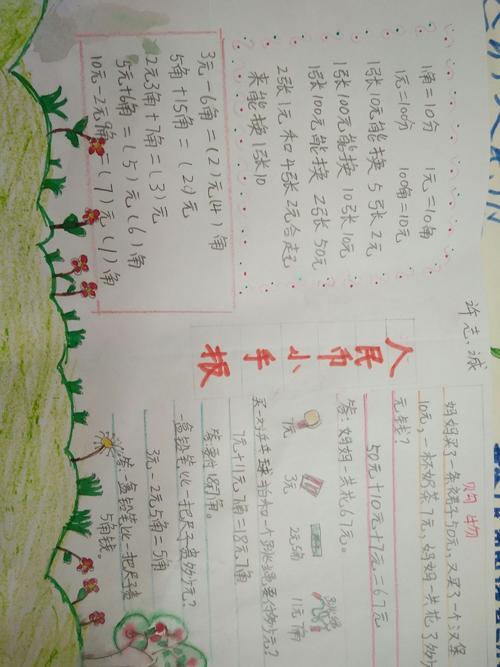 1角=10分 1元=10角
1元=100分 100角=10元
1张10元能换5张2元
1张100元能换10张10元
1张100元能换2张50元
2张1元和4张2元合起
来能换1张10
3元-6角=(2)元(4)角
5角+15角=(20)角
2元3角+7角=(3)元
5元+6角=(5)元(6)角
10元-2元9角=(7)元(1)角
许志诚
人民币小手报
购物
妈妈买了一条裙子50元,又买了一个汉堡
10元,一杯奶茶7元,妈妈一共花了多少
元钱?
50元+10元+7元=67元
答:妈妈一共花67元。
7元
3元
2元5角
11元7角
买一对乒乓球拍和一个
要付多少元?
7元+11元7角=18元7角
答:要付18元7角。
一盒铅笔比一把尺子贵多少元?
3元-2元5角=5角
答:一盒铅笔比一把尺子贵
5角钱。